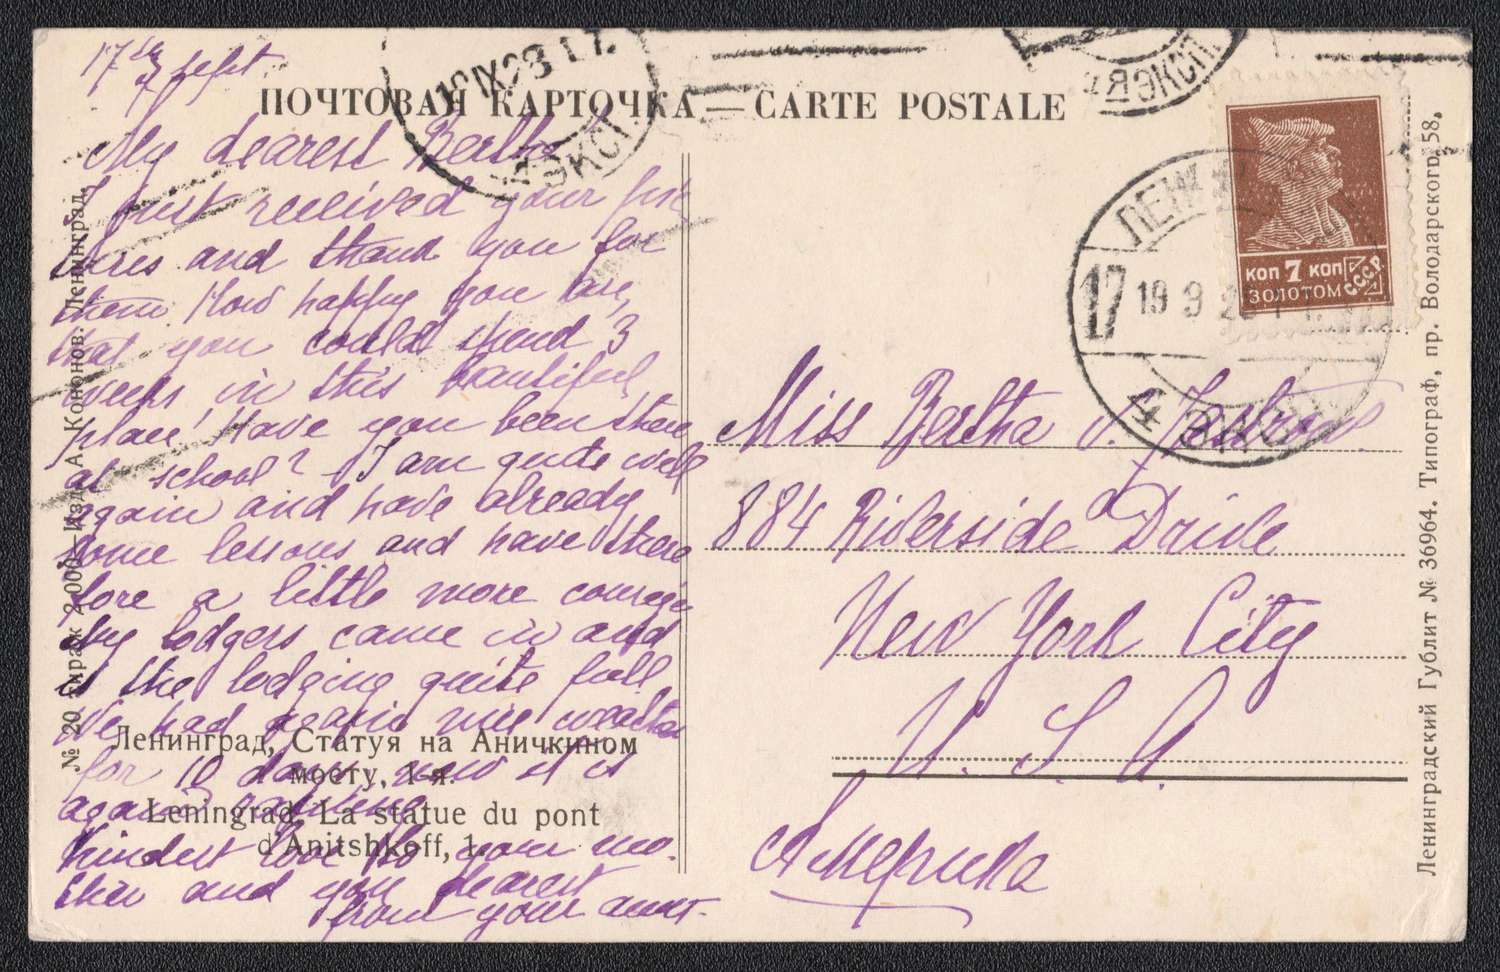 17 sept.
ПОЧТОВАЯ КАРТОЧКА — CARTE POSTALE
My dearest Bertha
I just received your pic
tures and thank you for
them How happy you are,
that you could spend 3
weeks in this beautiful
place! Have you been there
at school? I am quite well
again and have already
some lessons and have there
fore a little more courage
My lodgers came in and
is the lodging quite full.
We had again nice weather
for 10 days now it is
again raining
Kindest love to your mo.
ther and you dearest
from your aunt.
№ 20 Тираж 2.000 Изд. А. Кононов. Ленинград.
Ленинград, Статуя на Аничкином
мосту, 1-я.
Leningrad, La statue du pont
d'Anitshkoff, 1
19 IX 28 17.
ЭКСП.
4Я ЭКСП.
ЛЕНИН
17
19 9 2
4 ЭКСП
КОП 7 КОП
ЗОЛОТОМ
СССР
Miss Bertha v.
884 Riverside Drive
New York City
U. S. A.
Америка
Ленинградский Гублит № 36964. Типограф, пр. Володарского, 58.